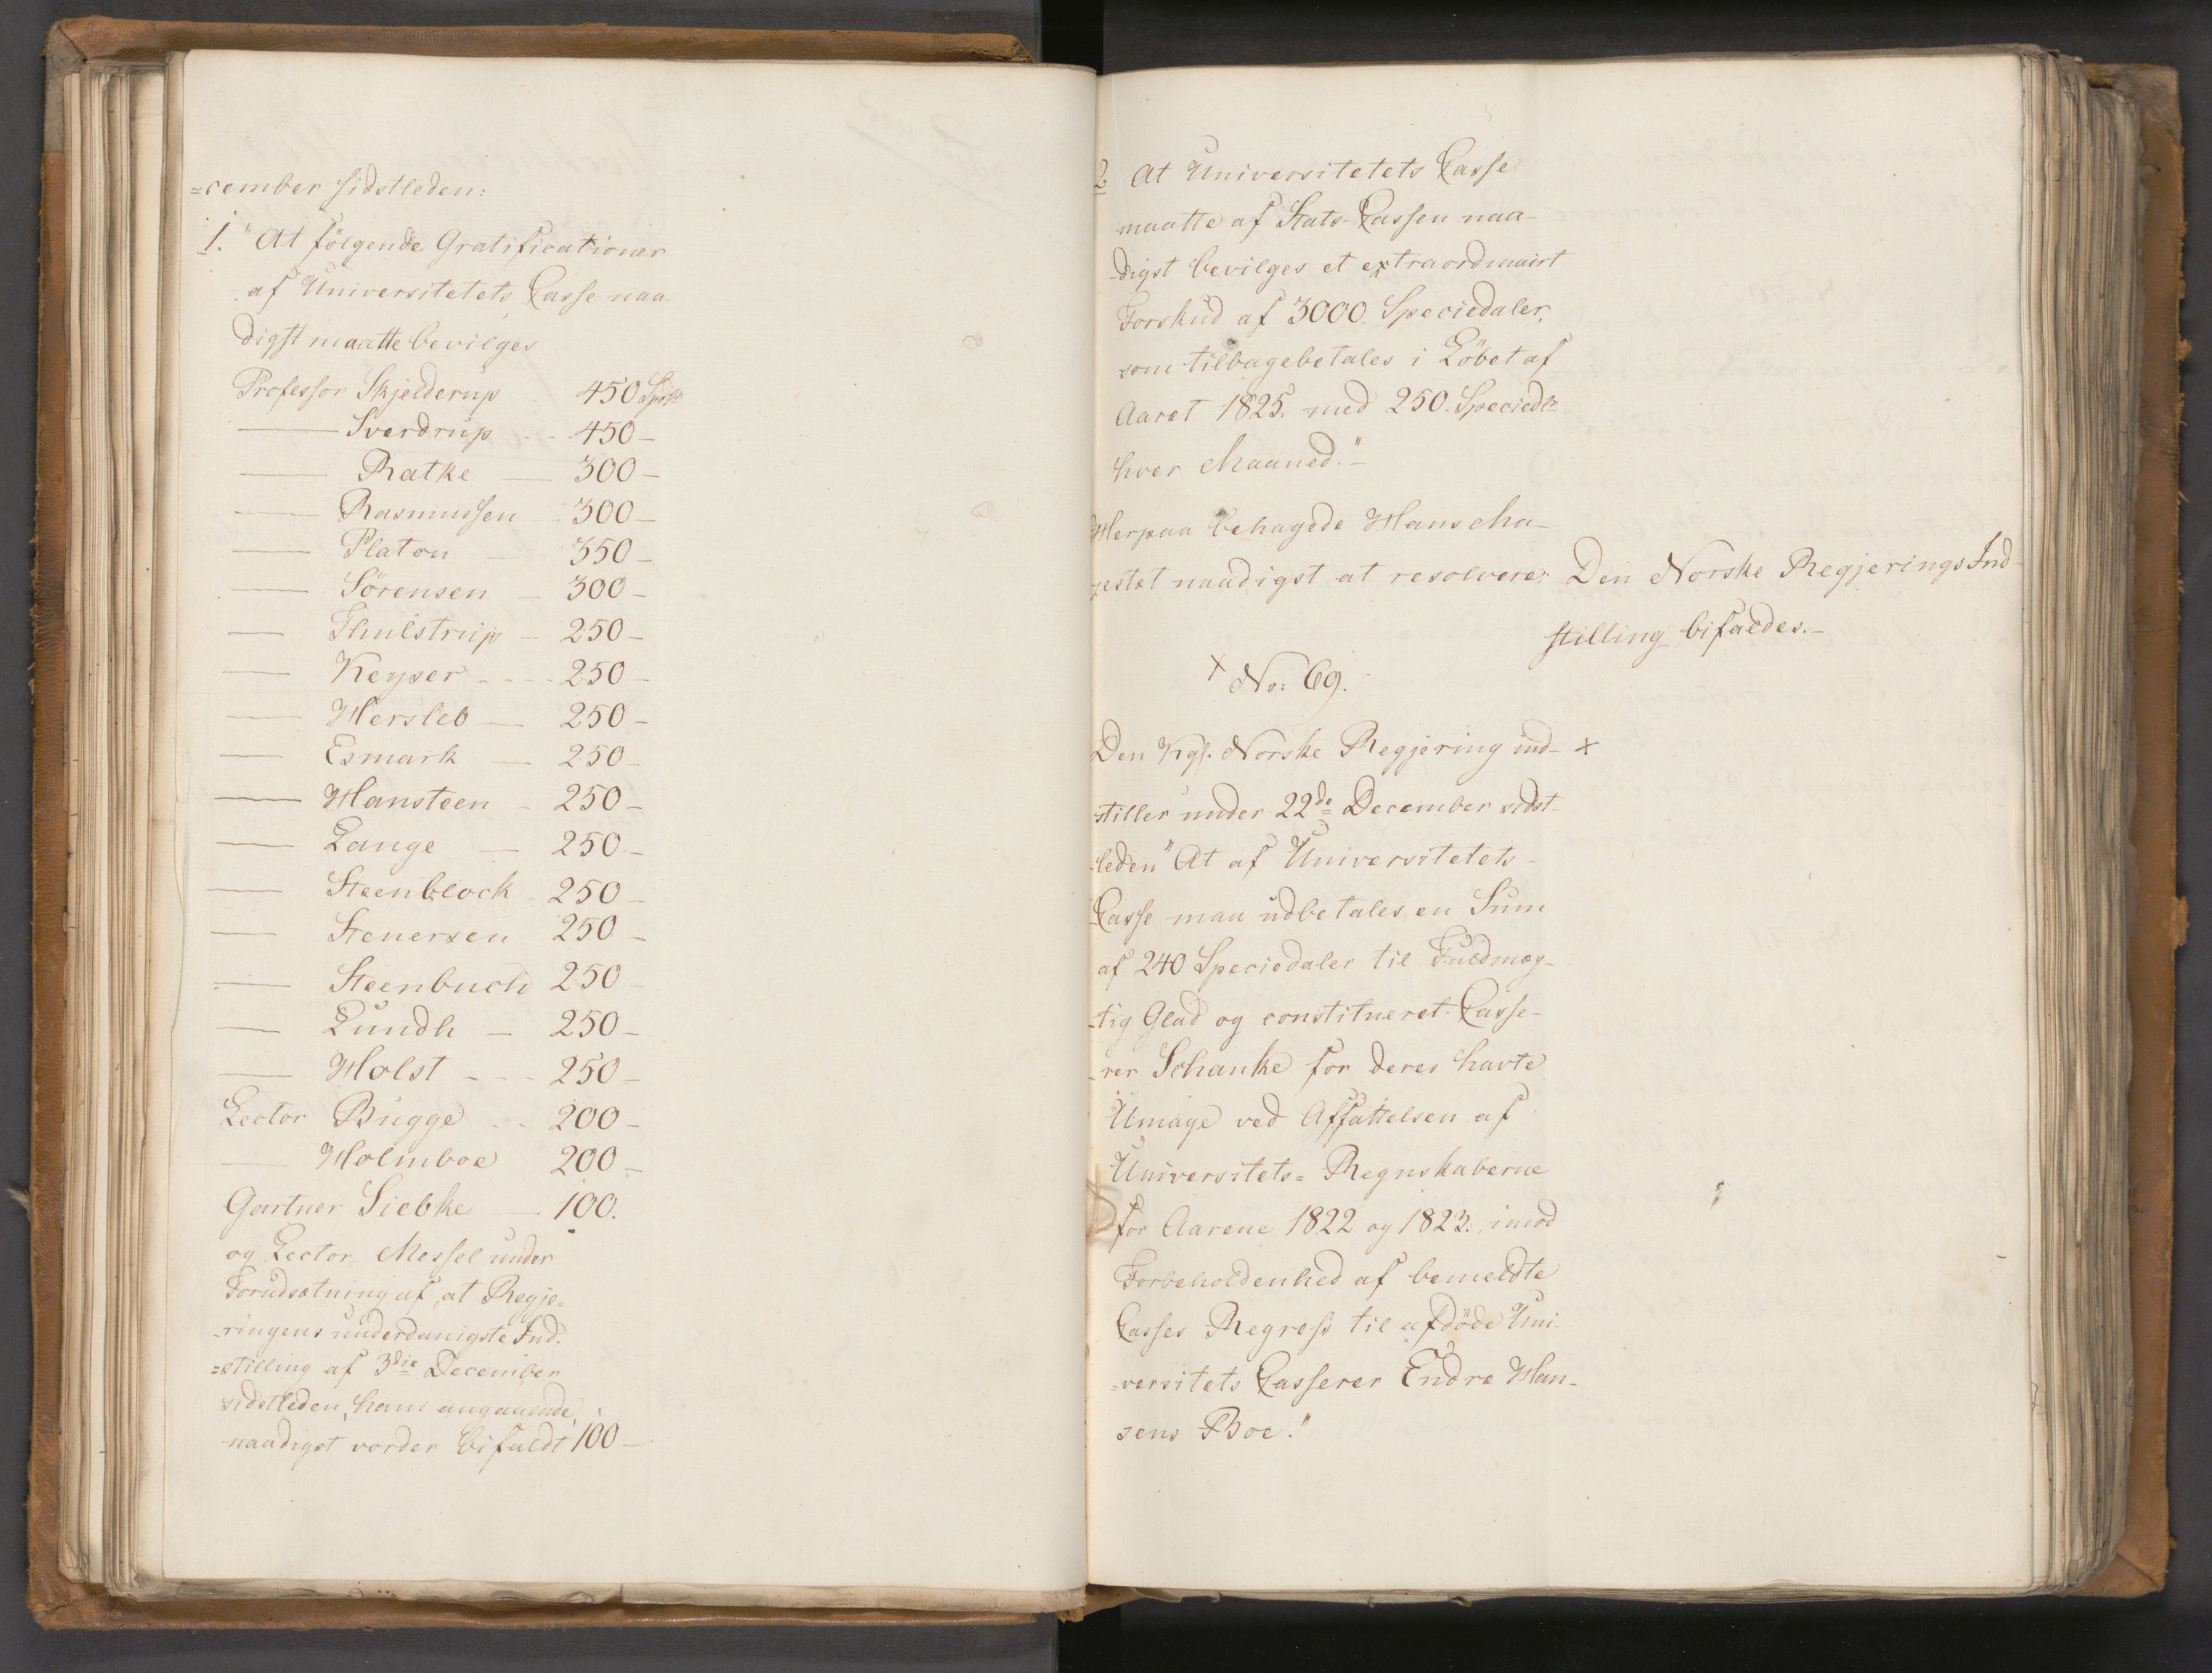 =cember sidstleden:
1. "At følgende Gratificationer
af Universitetets Casse naa-
digst maatte bevilges
Professor Skjelderup - 450 Spdlr
— Sverdrup - - 450 -
— Ratke — 300 -
— Rasmussen - 300 -
— Platou — 350 -
— Sörensen - 300 -
— Thulstrup - 250 -
— Keyser - - - 250 -
— Hersleb — 250 -
— Esmark — 250 -
— Hansteen - 250 -
— Lange — 250 -
— Steenblock - 250 -
— Stenersen 250 -
— Steenbuch 250 -
— Lundh — 250 -
— Holst - - - 250 -
Lector Bugge - - 200 -
— Holmboe 200 -
Gartner Siebke — 100.
og Lector Messel under
Forudsætning af, at Regje-
-ringens underdanigste Ind-
=stilling af 3die December
sidstleden, ham angaaende,
naadigst vorder bifaldt 100 -
2. At Universitetets Casse
maatte af Stats-Cassen naa-
-digst bevilges et extraordinairt
Forskud af 3000 Speciedaler,
som tilbagebetales i Löbet af
Aaret 1825. med 250. Speciedlr
hver Maaned." -
Herpaa behagede Hans Ma-
jestæt naadigst at resolvere: Den Norske Regjerings Ind-
stilling bifaldes. -
x No: 69.
Den Kgl. Norske Regjering ind- x
stiller under 22de December sidst-
-leden "At af Universitetets-
Casse maa udbetales en Sum
af 240 Speciedaler til Fuldmæg-
-tig Glad og constitueret Casse-
-rer Schanke for deres havte
Umage ved Affattelsen af
Universitets=Regnskaberne
for Aarene 1822 og 1823:, imod
Forbeholdenhed af bemeldte
Casses Regress til afdöde Uni-
=versitets Casserer Endre Han-
sens Boe."